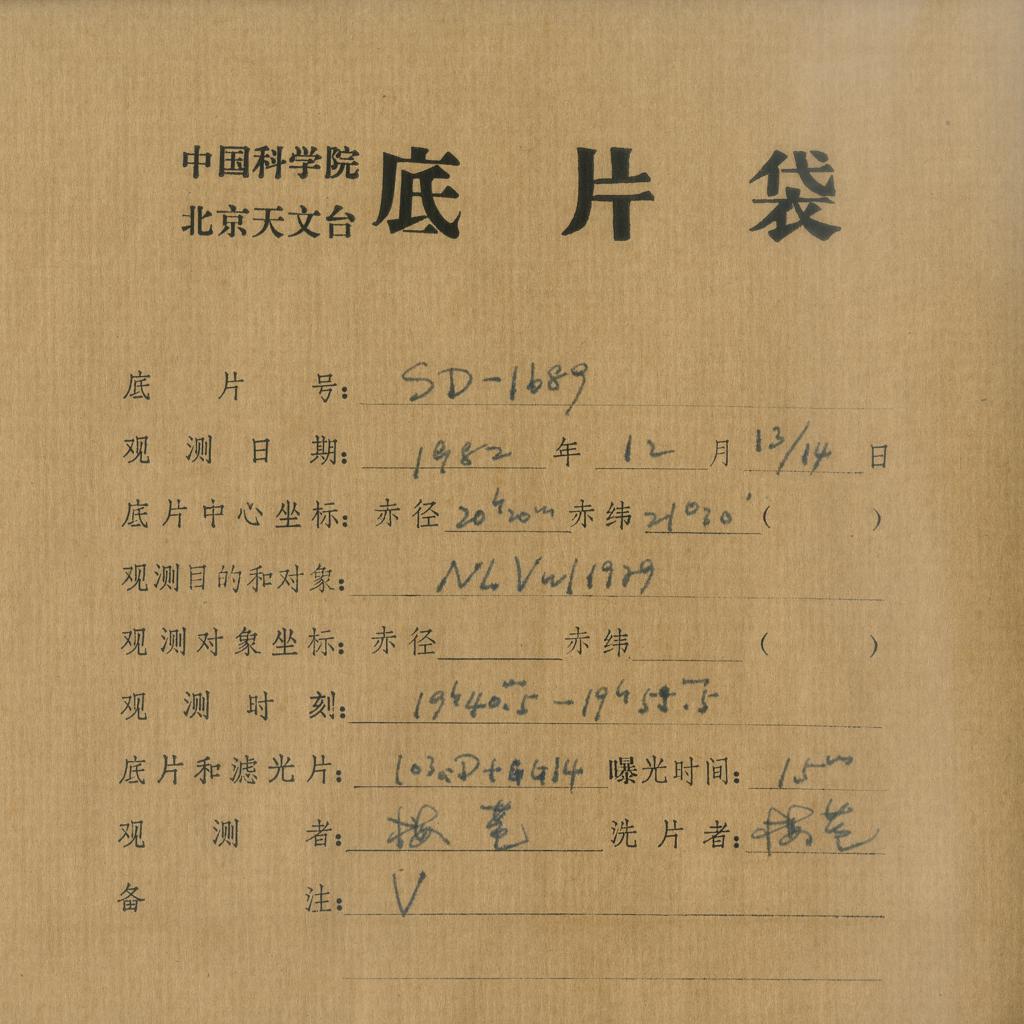 中国科学院
北京天文台
底片袋
底片号：SD-1689
观测日期：1982年12月13/14日
底片中心坐标：赤径20h20m赤纬21°030'(　)
观测目的和对象：N Vul 1979
观测对象坐标：赤径　赤纬　(　)
观测时刻：19h40m.5-19h55m.5
底片和滤光片：103aD+GG14 曝光时间：15m
观测者：梅苞 洗片者：梅苞
备注：V